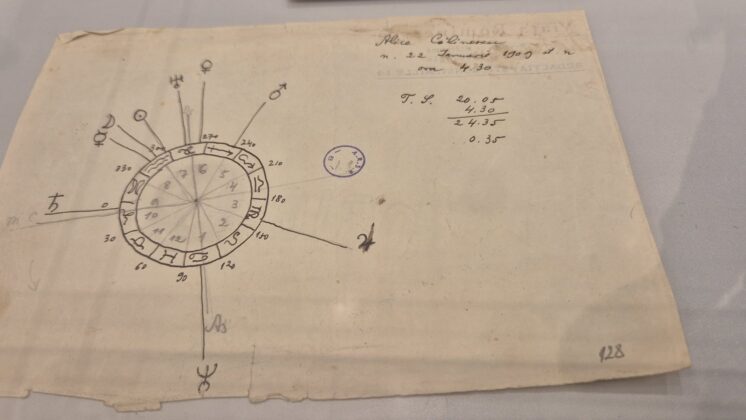 Alice Călinescu
n. 22 Ianuarie 1909 st n
ora 4.30
T. S. 20.05
4.30
24.35
0.35
♀
♅
♂
☉
☽
☿
270
300
240
330
210
♄
0
180
m c
30
150
♃
60
120
90
7 6 5
8 4
9 3
10 2
11 12 1
As
♆
128